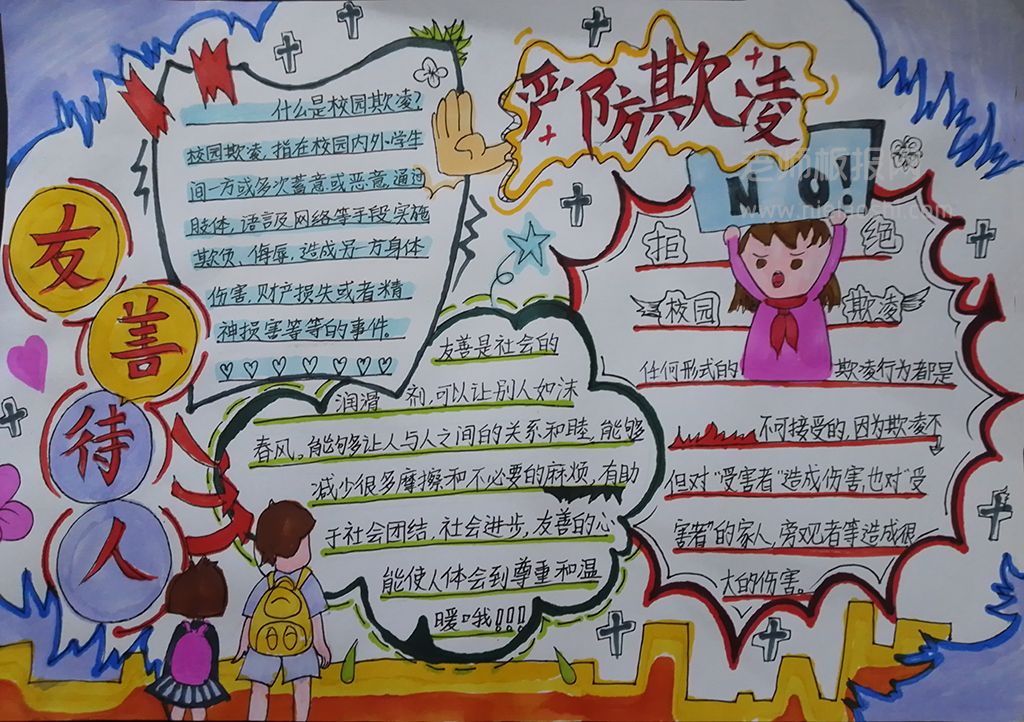 严防欺凌
友
善
待
人
什么是校园欺凌?
校园欺凌,指在校园内外小学生
间一方或多次蓄意或恶意,通过
肢体,语言及网络等手段实施
欺负、侮辱,造成另一方身体
伤害.财产损失或者精
神损害等等的事件。
友善是社会的
润滑 剂,可以让别人如沐
春风。能够多让人与人之间的关系和睦,能够
减少很多摩擦和不必要的麻烦,有助
于社会团结,社会进步,友善的心
能使人体会到尊重和温
暖哦!!!
NO!
拒 绝
校园 欺凌
任何形式的 欺凌行为都是
不可接受的,因为欺凌不
但对"受害者"造成伤害,也对"受
害者"的家人,旁观者等造成很
大的伤害。
老师板报网